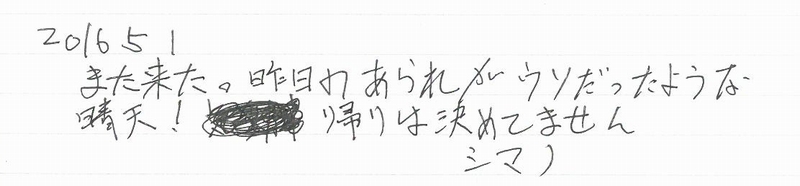 2016 5 1
また来た。昨日のあられがウソだったような
晴天! 帰りは決めてません
シマノ